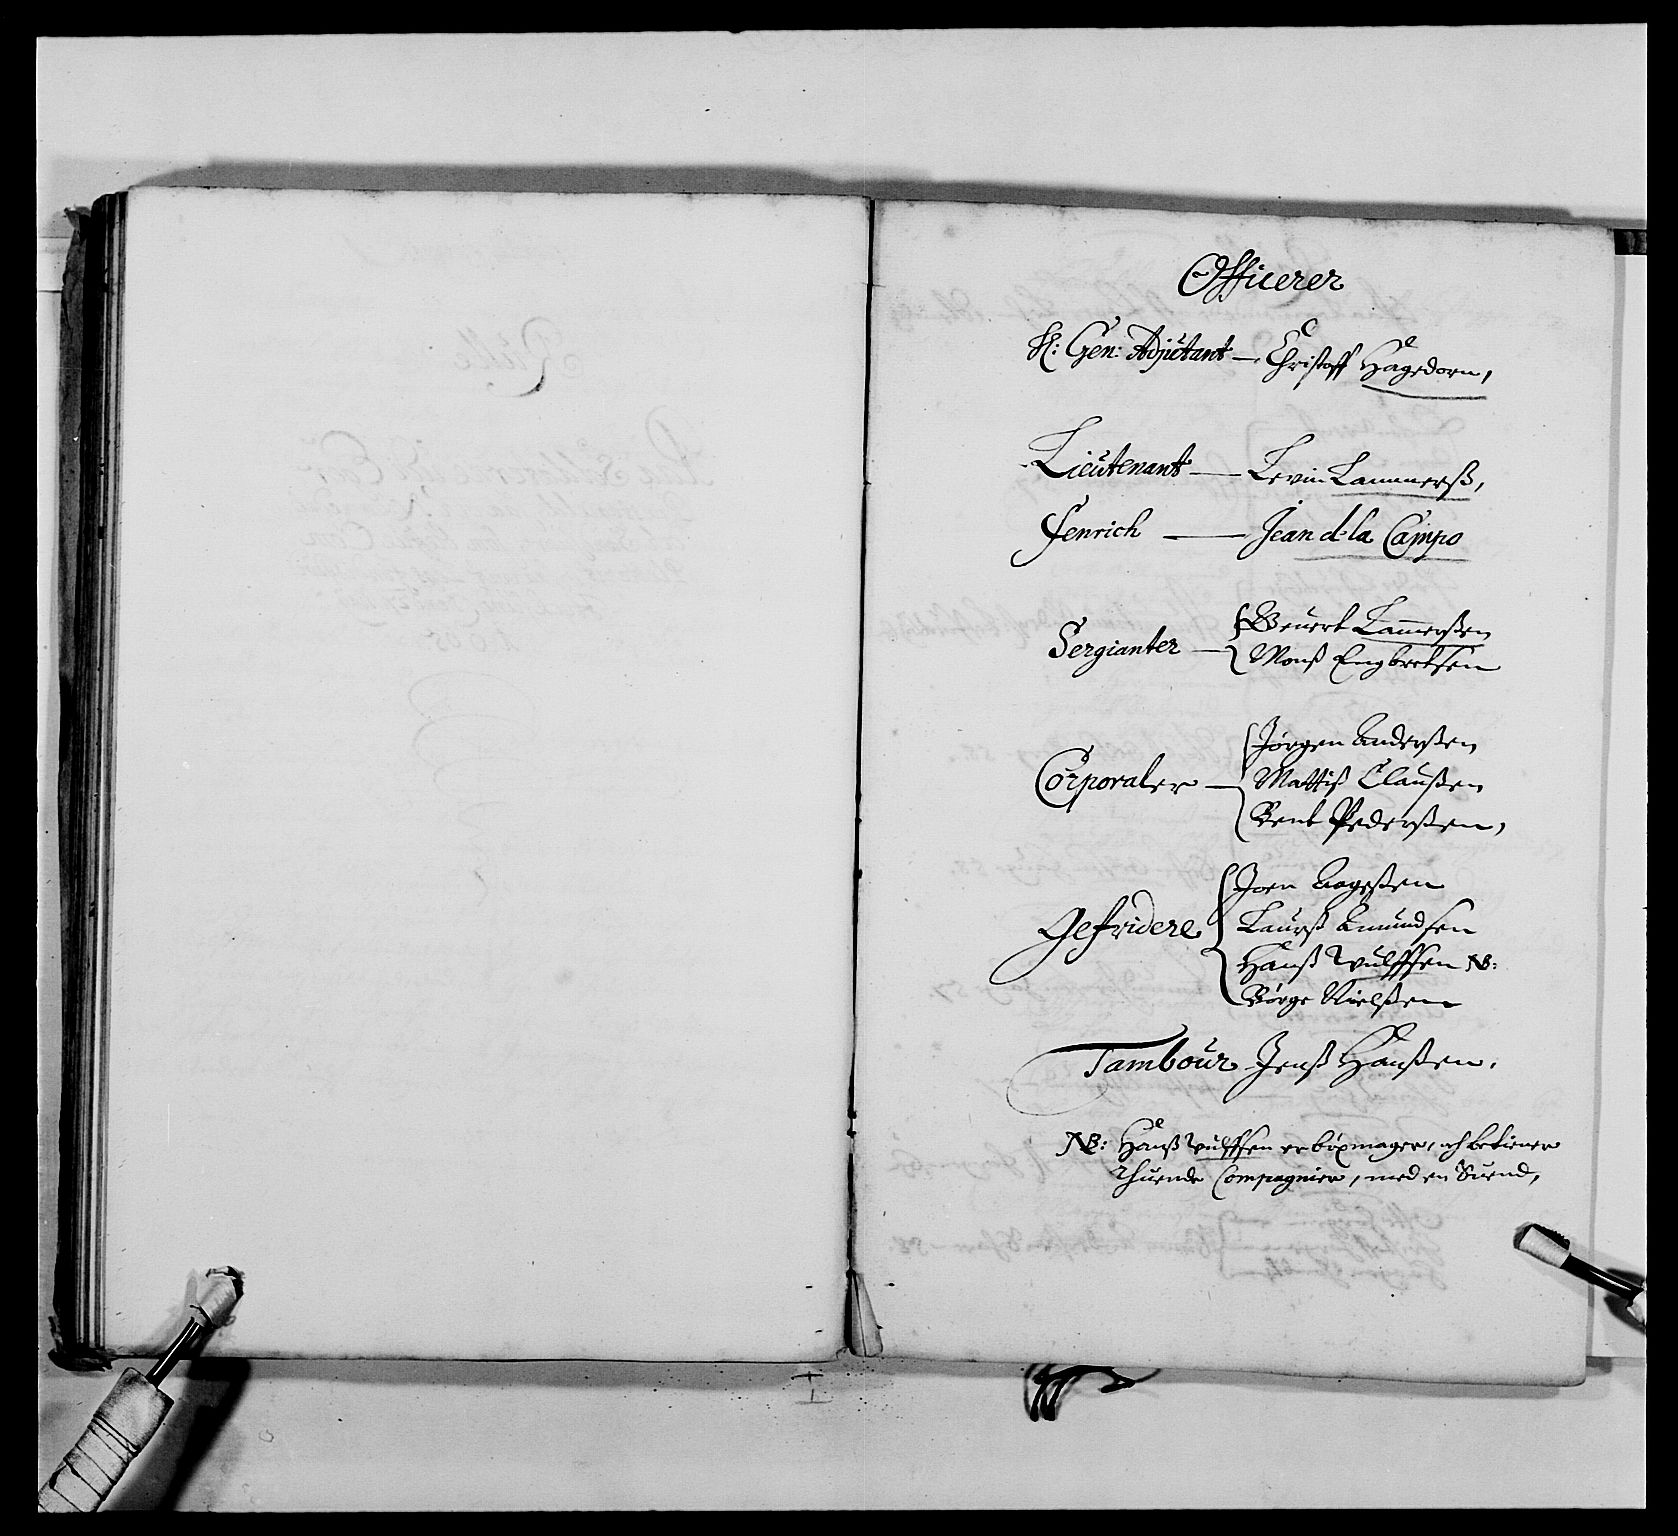 Officerer
H: Gen: Adjutant — Christoff Hagedorn,
Lieutenant — Levin Lammerß,
Fenrich — Jean d. la Campo
Sergianter — Evert Lam̅erßen
Monß Engbretsen
Corporaler — Jørgen Anderßen
Mattiß Claußen
Bent Pederßen,
Gefridere Joen Aageßen
Laurß Amundsen
Hanß Wulffsen NB:
Børge Nielßen
Tambour Jenß Hanßen.
NB: Hanß Wulffsen er bøxmager, och betiener
thuende Compagnier, med en Suend,